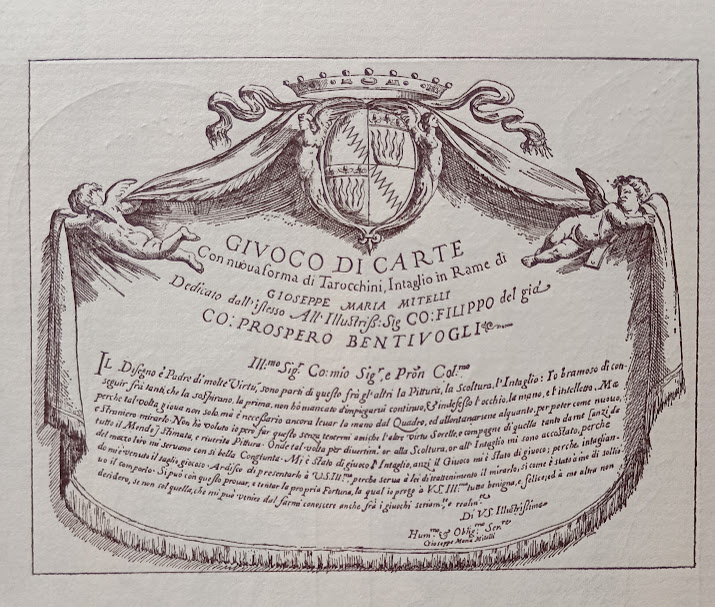 GIVOCO DI CARTE
Con nuova forma di Tarocchini, Intaglio in Rame di
GIOSEPPE MARIA MITELLI
Dedicato dall'istesso All'Illustriss: Sig CO: FILIPPO del già
CO: PROSPERO BENTIVOGLI
Ill.mo Sig.r Co: mio Sig.r, e Pron Col.mo
IL Disegno è Padre di molte Virtù, sono parti di questo frà gl'altri la Pittura, la Scoltura, l'Intaglio: Io bramoso di con-
seguir frà tanti, che la sospirano, la prima, non hò mancato d'impiegarui continuo, & indefesso l'occhio, la mano, e l'intelletto. Mà
perche tal volta gioua non solo, mà è necessario ancora leuar la mano dal Quadro, ed allontanarsene alquanto, per poter come nuouo,
e straniero mirarlo: Non hò voluto io però far questo senza tenermi amiche l'altre Virtù Sorelle, e compagne di quella tanto da me
tutto il Mondo Stimata, e riuerita Pittura. Onde tal volta per diuertirmi, or alla Scoltura, or all'Intaglio mi sono accostato, perche
del mazzo loro mi seruano con sì bella Congiunta. Mi è stato di giuoco l'Intaglio, anzi il Giuoco mi è stato di giuoco; perche intaglian-
do m'è venuto il taglio, giocaso. Ardisco di presentarlo à V.S. Ill.ma perche serua à lei di trattenimento il mirarlo, sì come è stato à me di sollie-
uo il comporlo. Si può con questo prouar, e tentar la propria Fortuna, la qual io prego à V.S. Ill.ma tutta benigna, e felice, ed à me altra non
desidero, se non sol quella, che mi può venire dal farmi conoscere anche frà i giuochi seriam.te e realm.te
Di V.S. Illustrissima
Hum.mo & Oblig.mo Ser.re
Gioseppe Maria Mitelli